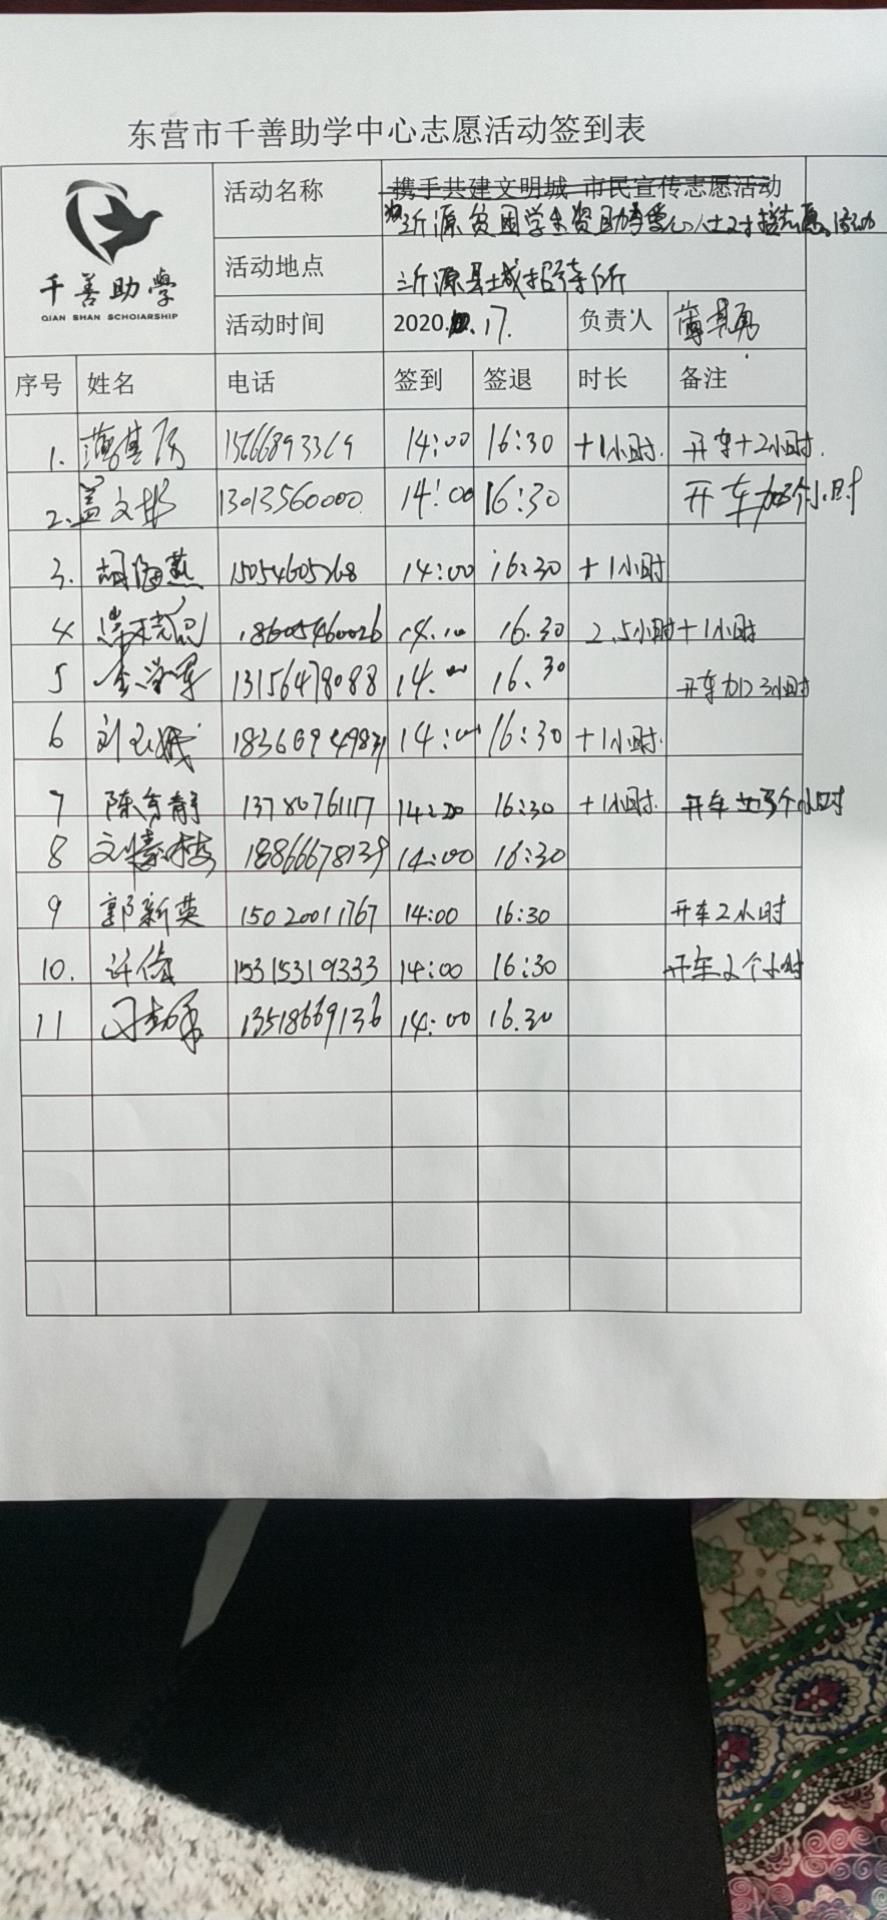 东营市千善助学中心志愿活动签到表
千善助學
QIAN SHAN SCHOIARSHIP
活动名称 携手共建文明城 市民宣传志愿活动
沂源贫困学生资助 爱心人士对接志愿活动
活动地点 沂源县城招待所
活动时间 2020. .17. 负责人
序号 姓名 电话 签到 签退 时长 备注
1. 15666893369 14:00 16:30 +1小时. 开车+2小时.
2. 盖文 13013560000 14:00 16:30 开车加3个小时
3. 胡海燕 15054605268 14:00 16:30 +1小时
4 18605460026 14.10 16.30 2.5小时+1小时
5 李学军 13156478088 14.00 16.30 开车加3小时
6 刘玉娥 14:00 16:30 +1小时.
7 陈秀静 13780761117 14:20 16:30 +1小时. 开车加3个小时
8 18866678139 14:00 16:30
9 郭新英 15020011767 14:00 16:30 开车2小时
10. 许倩 15315319333 14:00 16:30 开车2个小时
11 13518669136 14:00 16.30